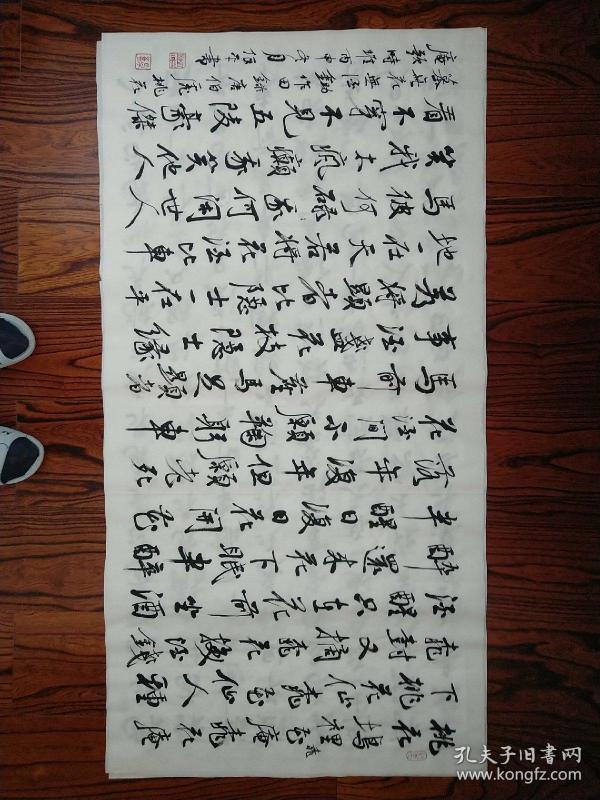 桃花塢裡桃花庵桃花庵
下桃花仙桃花仙人種
桃樹又摘桃花換酒錢
酒醒只在花前坐酒
醉還來花下眠半醒
半醉日復日花開花
落年復年但願老死
花酒間不願鞠躬車
馬前車塵馬足顯者
事酒盞花枝隱士緣
若將顯者比隱士一在平
地一在天若將花酒比車
馬彼何碌碌我何閑世人
笑我太瘋癲我笑他人
看不穿不見五陵豪傑
墓無花無酒鋤作田錄唐伯虎桃花
庵歌時在丙申冬月
孔夫子旧书网
www.kongfz.com